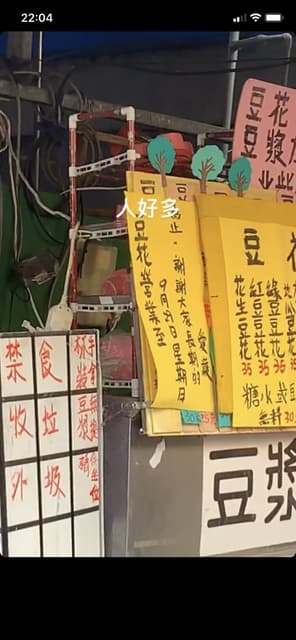 22:04
豆花
豆漿
人好多
豆花營業至
9月29日星期日
止,謝謝大家長期的
愛戴
豆
花生豆花 35
紅豆豆花 35
綠豆豆花
糖水或豆
無料30
禁收外
食垃圾
杯裝豆漿
豆漿